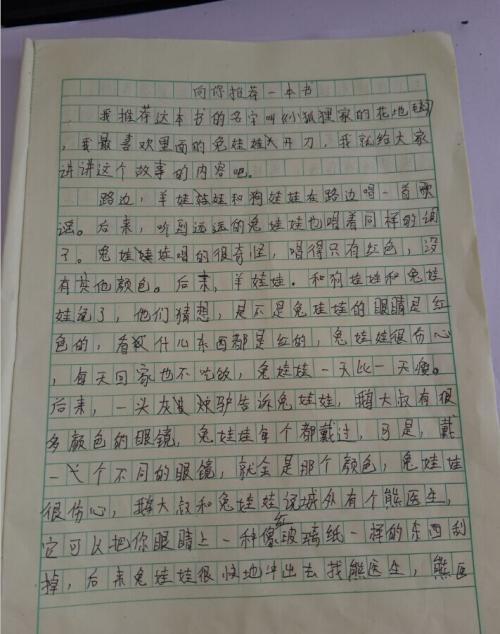 向你推荐一本书
我推荐这本书的名字叫《小狐狸家的花地毯》
，我最喜欢里面的兔娃娃开刀，我就给大家
讲讲这个故事的内容吧。
路边，羊娃娃和狗娃娃在路边唱一首歌
谣。后来，听到远远的兔娃娃也唱着同样的调
子。兔娃娃唱的很奇怪，唱得只有红色，没
有其他颜色。后来，羊娃娃．和狗娃娃和兔娃
娃说了，他们猜想，是不是兔娃娃的眼睛是红
色的，看什么东西都是红的，兔娃娃很伤心
，每天回家也不吃饭，兔娃娃一天比一天瘦。
后来，一头灰驴告诉兔娃娃，鹅大叔有很
多颜色的眼镜，兔娃娃每个都戴过，可是，戴
一个不同的眼镜，就全是那个颜色，兔娃娃
很伤心，鹅大叔和兔娃娃说城外有个熊医生，
它可以把你眼睛上一种像红玻璃纸一样的东西刮
掉，后来兔娃娃很快地冲出去找熊医生，熊医